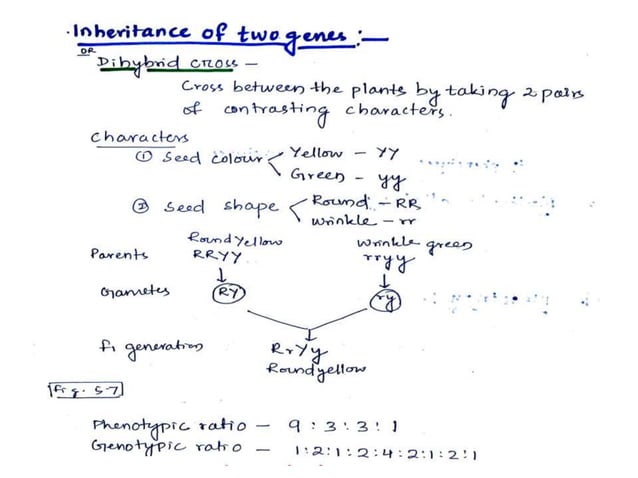 Inheritance of two genes :—
OR
Dihybrid cross —
Cross between the plants by taking 2 pairs
of contrasting characters.
Characters
① Seed colour Yellow - YY
Green - yy
② Seed shape Round - RR
Wrinkle - rr
Round Yellow Wrinkle green
Parents RRYY rryy
Gametes RY ry
F1 generation RrYy
Round yellow
Fig. 5.7
Phenotypic ratio — 9 : 3 : 3 : 1
Genotypic ratio — 1:2:1:2:4:2:1:2:1